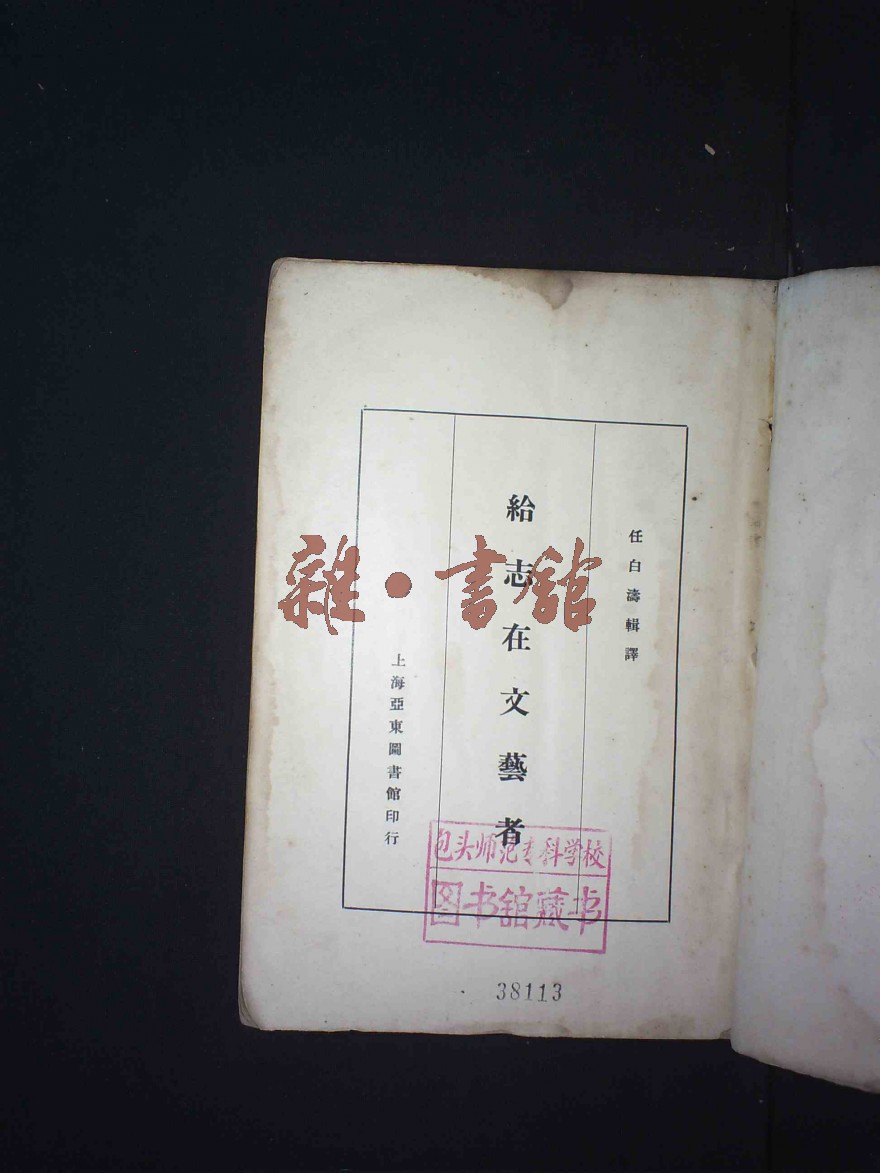 任白濤輯譯
給志在文藝者
上海亞東圖書館印行
雜·書館
包头师范专科学校
图书馆藏书
38113